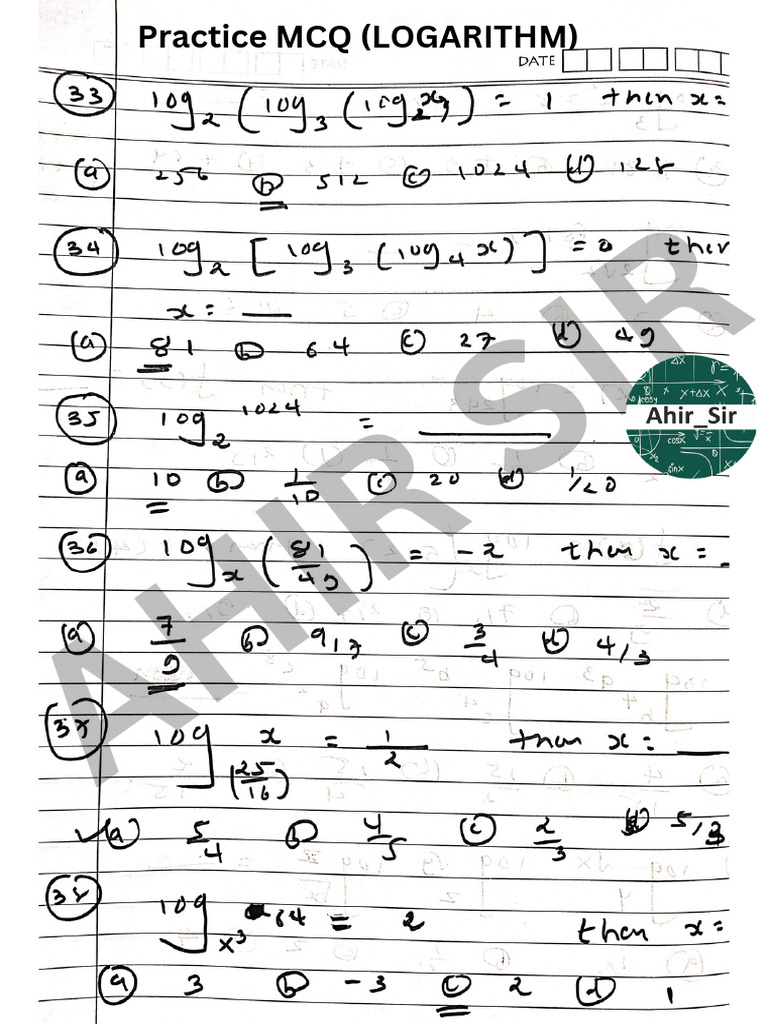 Practice MCQ (LOGARITHM)
DATE
33 log₂ (log₃ (log₂ x)) = 1 then x=
(a) 256 (b) 512 (c) 1024 (d) 128
34 log₂ [log₃ (log₄ x)] = 0 ther
x = __
(a) 81 (b) 64 (c) 27 (d) 49
35 log₂ 1024 = ____
(a) 10 (b) 1/10 (c) 20 (d) 1/20
36 logₓ (81/49) = -2 then x = _
(a) 7/9 (b) 9/7 (c) 3/4 (d) 4/3
37 log(25/16) x = 1/2 then x = __
(a) 5/4 (b) 4/5 (c) 2/3 (d) 5/3
38 log x³ 64 = 2 then x=
(a) 3 (b) -3 (c) 2 (d) 1
AHIR SIR
Ahir_Sir